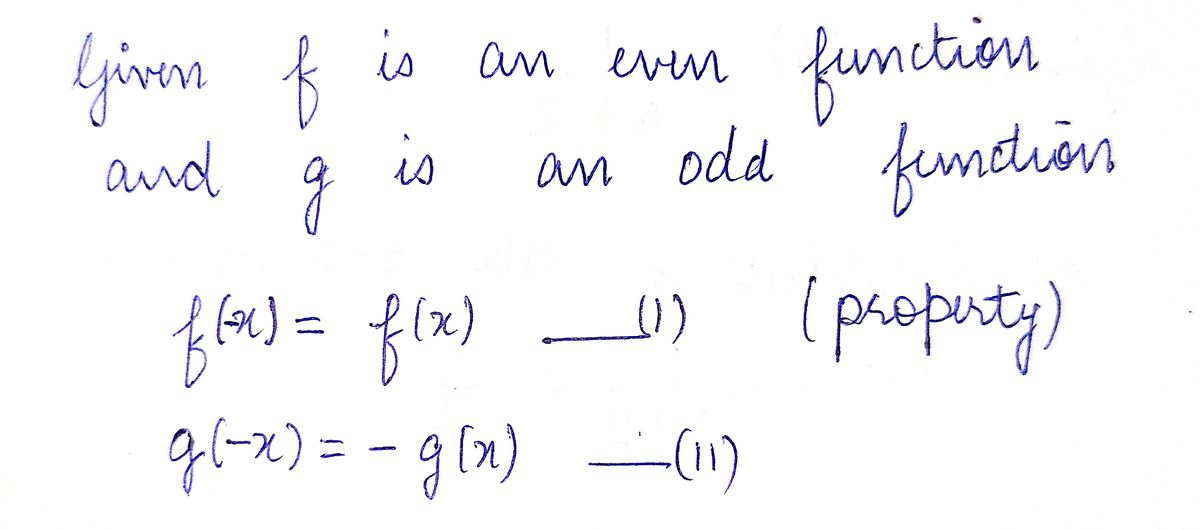 Given f is an even function
and g is an odd function
f(-x) = f(x) ——(I) (property)
g(-x) = - g(x) ——(II)